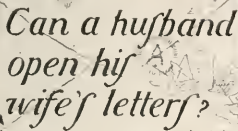 Can a huſband
open hiſ
wife'ſ letterſ?